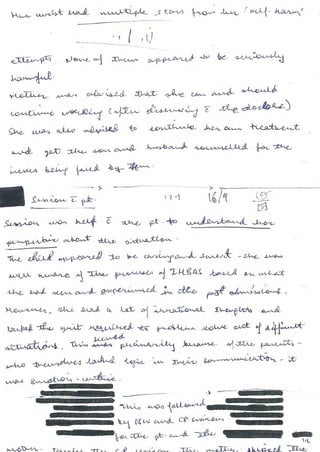 Her wrist had multiple scars from her 'self-harm'
attempts. None of them appeared to be seriously
harmful.
Mother was advised that she can and should
continue working (after discussing c̄ the doctors.)
She was also advised to continue her own treatment
and get the son and husband counselled for the
issues being faced by them.
Session c̄ pt. 16/9
Session was held c̄ the pt. to understand her
perspective about the situation.
The child appeared to be caring and smart - she was
well aware of the premises of IHBAS based on what
she had seen and experienced in the past admissions.
However, she had a lot of irrational thoughts and
lacked the grit required to problem solve out of difficult
situations. This seemed primarily because of the parents -
who themselves lacked logic in their communication - it
was emotion-centric.
This was followed
by and CP sessions
for the pt. and the
the CP session, the mother the